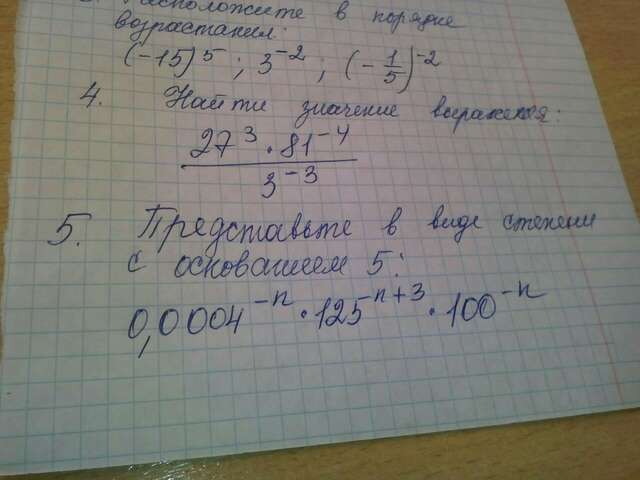 3. Расположите в порядке
возрастания:
(-15)⁵ ; 3⁻² ; (-1/5)⁻²
4. Найти значение выражения:
27³ · 81⁻⁴
3⁻³
5. Представьте в виде степени
с основанием 5:
0,0004⁻ⁿ · 125ⁿ⁺³ · 100⁻ⁿ